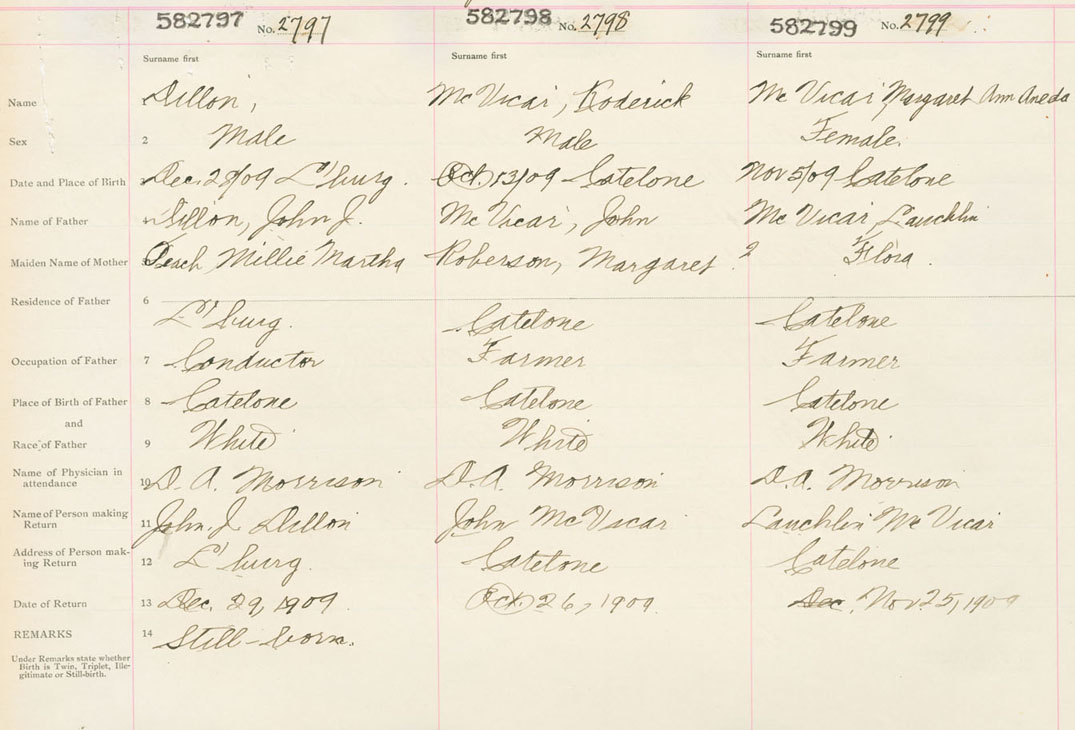 582797 No. 2797 582798 No. 2798 582799 No. 2799
Surname first Surname first Surname first
Name Dillon, Mc Vicar, Roderick Mc Vicar, Margaret Ann Aneda
Sex 2 Male Male Female.
Date and Place of Birth Dec. 28/09 L'burg. Oct. 13/09 Catelone Nov 5/09 Catelone
Name of Father 4 Dillon, John J. Mc Vicar, John Mc Vicar, Lauchlin
Maiden Name of Mother Millie Martha Roberson, Margaret ? Flora.
Residence of Father 6
L'burg. Catelone Catelone
Occupation of Father 7 Conductor Farmer Farmer
Place of Birth of Father 8 Catelone Catelone Catelone
and
Race of Father 9 White White White
Name of Physician in
attendance 10 D. A. Morrison D. A. Morrison D. A. Morrison
Name of Person making
Return 11 John. J. Dillon John McVicar Lauchlin Mc Vicar
Address of Person mak-
ing Return 12 L'burg. Catelone Catelone
Date of Return 13 Dec. 29, 1909. Oct. 26, 1909. Dec. Nov. 25, 1909
REMARKS 14 Still-born.
Under Remarks state whether
Birth is Twin, Triplet, Ille-
gitimate or Still-birth.